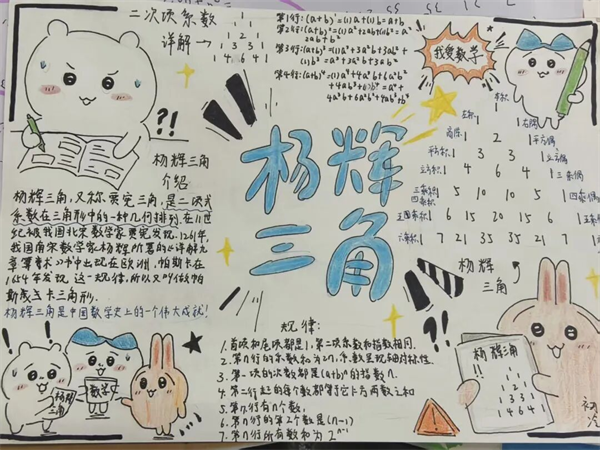 二次项系数
详解→
1
1 2 1
1 3 3 1
1 4 6 4 1
第1行:(a+b)¹=(1)a+(1)b=a+b
第2行:(a+b)²=(1)a²+2ab+(1)b²=a²
2ab+b²
第3行:(a+b)³=(1)a³+3a²b+3ab²+
(1)b³=a³+3a²b+3ab²
第4行:(a+b)⁴=(1)a⁴+4a³b+6a²b²
+4ab³+(1)b⁴=a⁴+
4a³b+6a²b²+4ab³+b⁴
我爱数学
?!
杨辉三角
介绍
杨辉三角,又称贾宪三角,是二项式
系数在三角形中的一种几何排列.在11世
纪被我国北宋数学家贾宪发现.1261年,
我国南宋数学家杨辉所著的《详解九
章算术》书中出现在欧洲,帕斯卡在
1654年发现这一规律,所以又叫做帕
斯卡三角形.
杨辉三角是中国数学史上的一个伟大成就!
杨辉
三角
1
1 2 1
1 3 3 1
1 4 6 4 1
1 5 10 10 5 1
1 6 15 20 15 6 1
1 7 21 35 35 21 7 1
杨辉
三角
?!
规律:
1.首项和尾项都是1,第二项系数和指数相同.
2.第n行的系数和为2ⁿ,系数呈现轴对称性.
3.第一项的次数都是(a+b)ⁿ的指数n.
4.第二行起的每个数都等于它上方两数之和
5.第n行有n个数;
6.第n行的第2个数是(n-1)
7.第n行所有数和为2ⁿ⁻¹
杨辉
三角
数学
杨辉三角
1
1 2 1
1 3 3 1
1 4 6 4 1
初